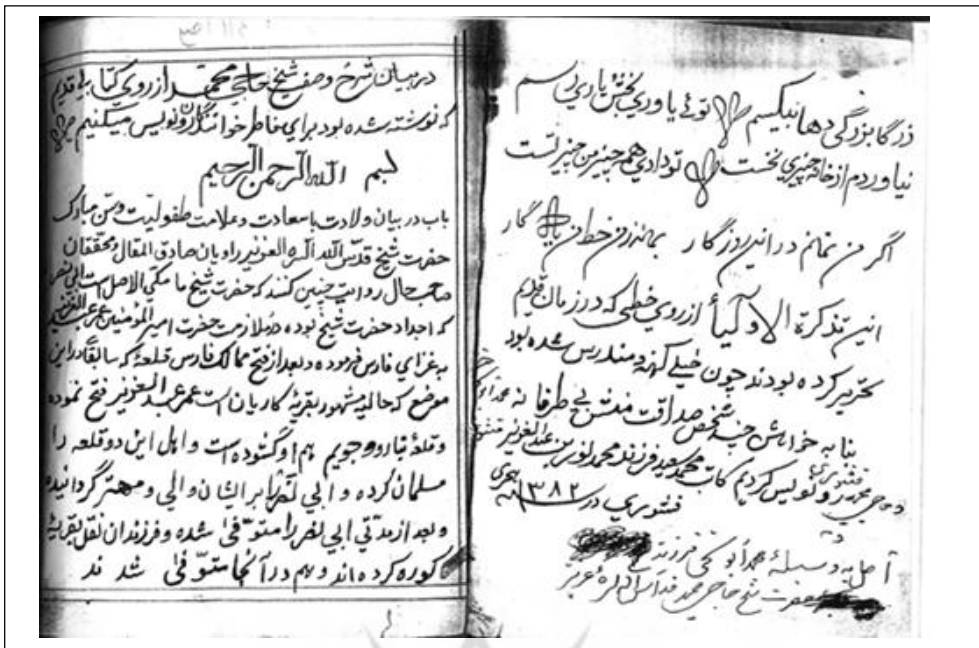 بزرگی توئے یاوری بخش یاری رسم
نیاوردم از خانه چیزی نخست تو دادی همه چیز من چیز تست
اگر من نمانم در این روزگار بماند زمن خط من یادگار
این تذکرة الاولیأ از روی خطی که در زمان قدیم
تحریر کرده بودند چون خیلے کهنه و مندرس شده بود
بنا به خواهش چند شخص صداقت منش بے طرفانه محمد
محمد فشتوری رونویس کردیم کاتب محمد سعید فرزند محمد نور بن عبد العزیز فشتوری
فشتوری در سنه ۱۳۸۲ هجری
به وسیلهٔ محمد أبو فرزند
حضرت شیخ حاجی محمد قدس الله سره عزیز
در بیان شرح وصف شیخ حاجی محمد از روی کتابے قدیم
که نوشته شده بود برای خاطر خوانندگان رونویس میکنیم
بسم الله الرحمن الرحیم
باب در بیان ولادت باسعادت و علامت طفولیت و سن مبارک
حضرت شیخ قدس الله سره العزیز راویان صادق المقال و محققان
صاحب حال روایت چنین کنند که حضرت شیخ ما مکی الاصل است ابی نصر
که اجداد حضرت شیخ بوده در ملازمت حضرت امیر المؤمنین عمر عبد العزیز
به غزای فارس فرموده و بعد از فتح ممالک فارس قلعهٔ که سابقاً در این
موضع که حالیه مشهور بقریهٔ کاریان است عمر عبد العزیز فتح نموده
و قلعهٔ تبارو جویم هم او گشوده است و اهل این دو قلعه را
مسلمان کرده و ابی نصر را بر ایشان والی و مهتر گردانیده
و بعد از مدّتی ابی نصر را متوّفیٰ شده و فرزندان نقل بقریهٔ
کوره کرده اند و هم در آنجا متوّفیٰ شدند